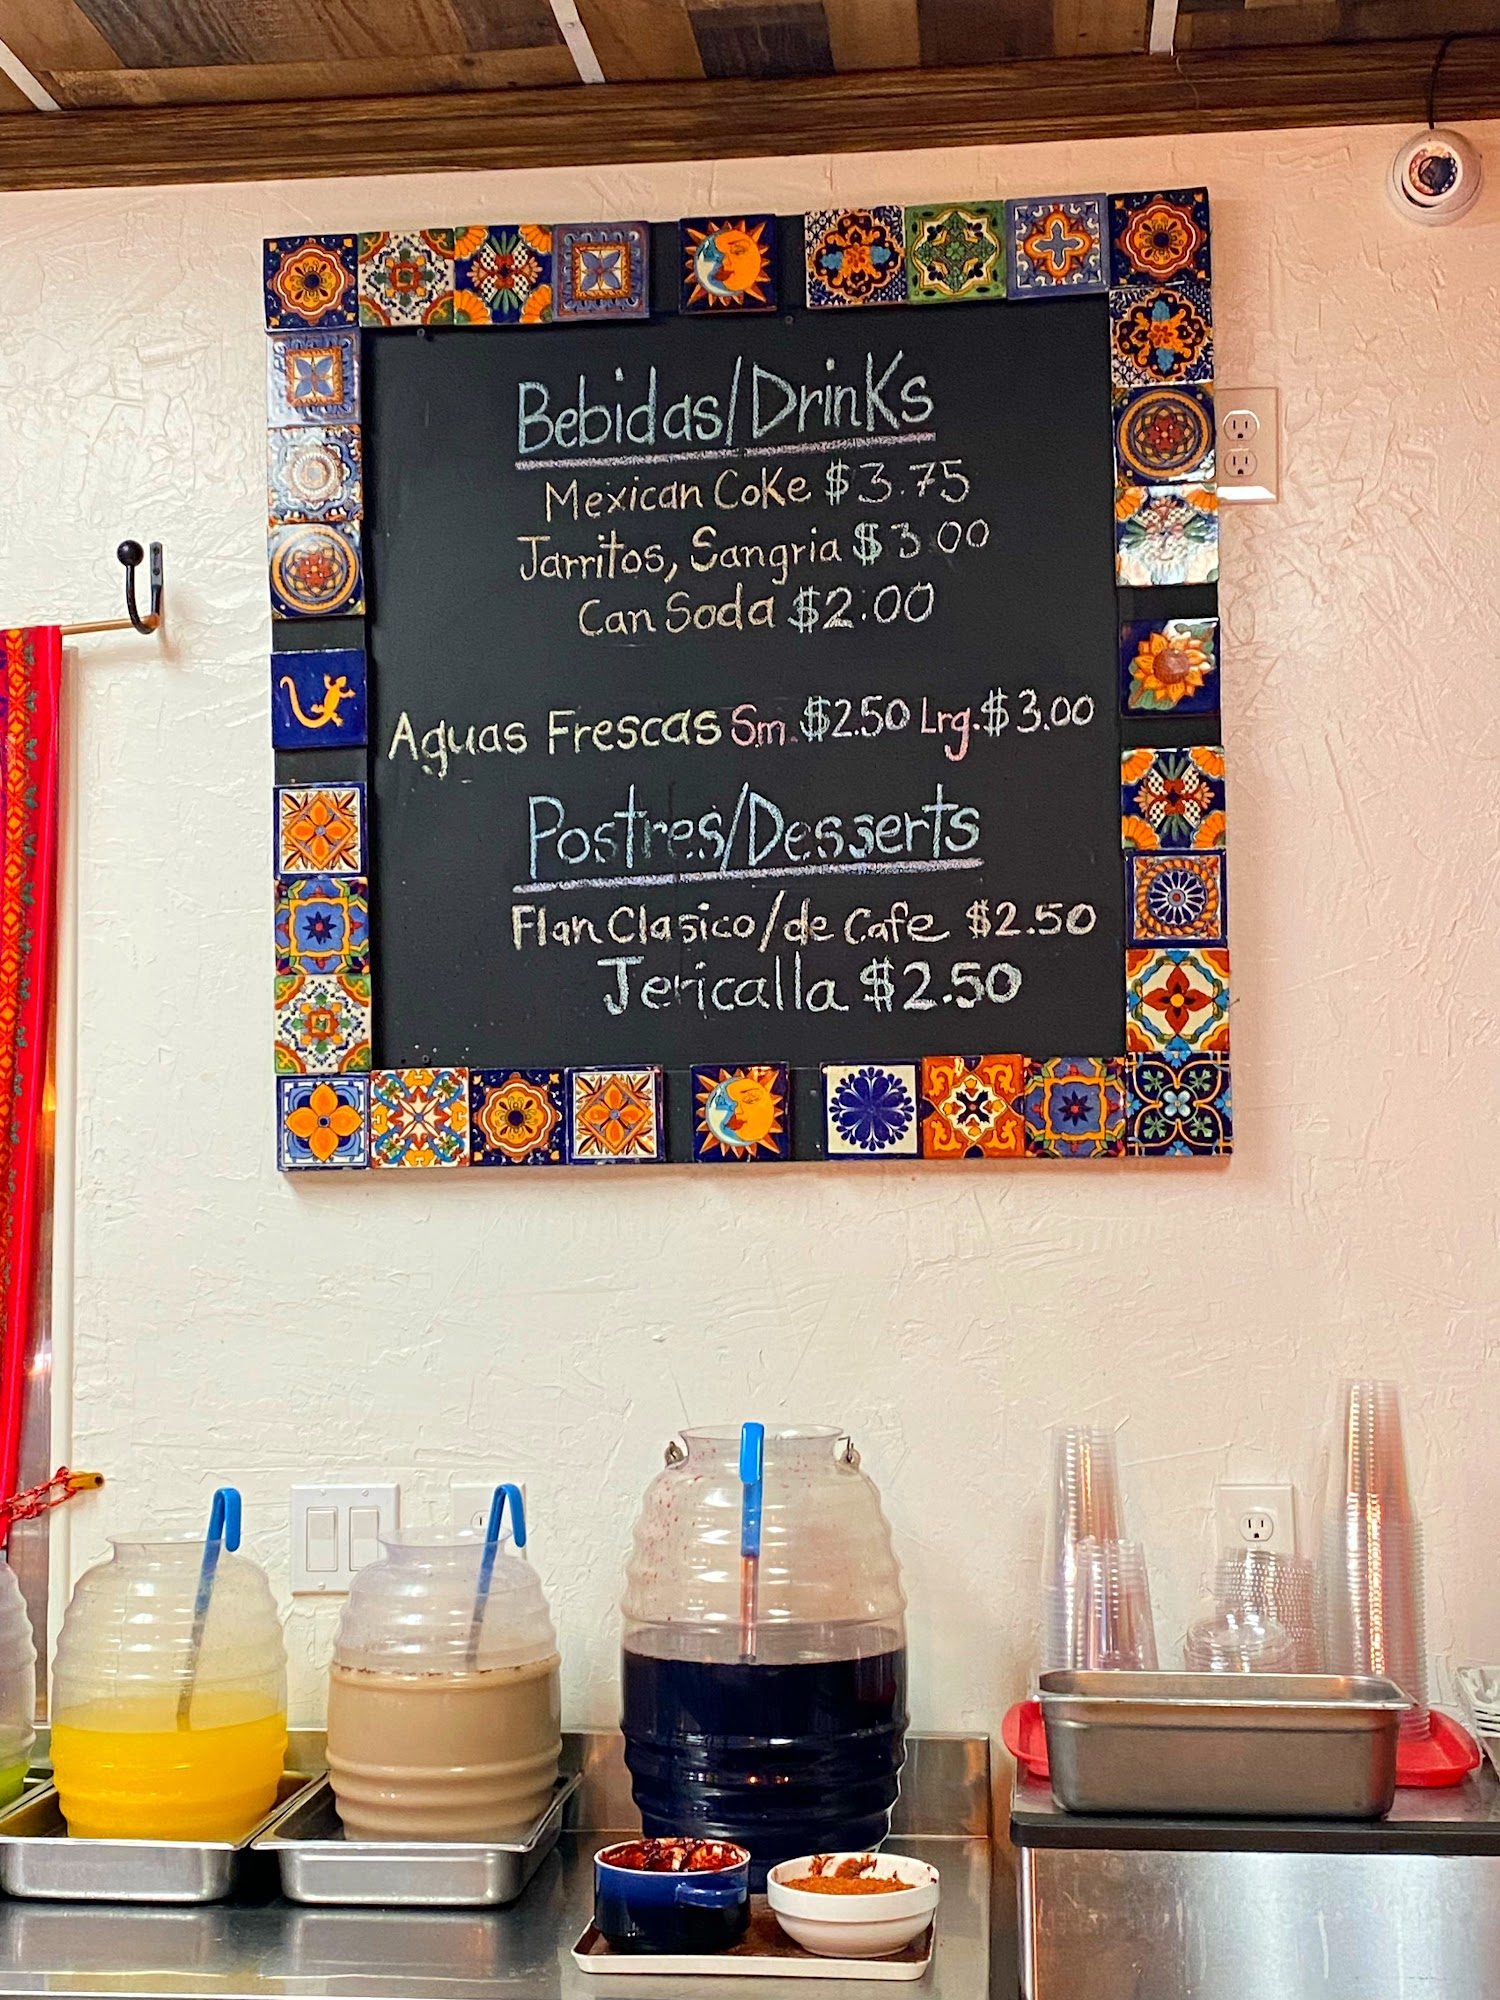 Bebidas/Drinks
Mexican Coke $3.75
Jarritos, Sangria $3.00
Can Soda $2.00
Aguas Frescas Sm. $2.50 Lrg. $3.00
Postres/Desserts
Flan Clasico/de Cafe $2.50
Jericalla $2.50